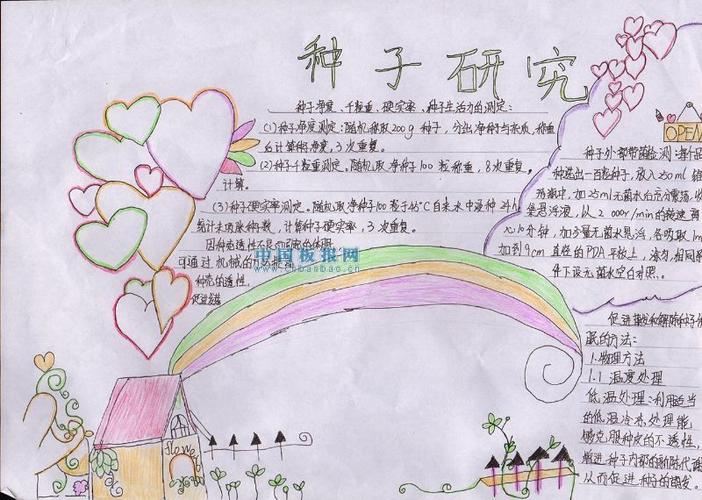 种子研究
种子净度、千粒重、硬实率、种子生活力的测定:
(1)种子净度测定:随机称取200g种子,分出净种与杂质,称重
后计算种子净度,3次重复。
(2)种子千粒重测定。随机取净种子100粒称重,8次重复。
计算。
(3)种子硬实率测定。随机取净种子100粒于45°C自来水中浸种24h
统计未吸胀种数,计算种子硬实率,3次重复。
因种皮透性不良而引起的休眠
可通过机械的
种壳的透性,
中国板报网
OPEN
种子外部带菌检测:每个品
种选出一百粒种子,放入250ml锥
形瓶中,加25ml无菌水后充分震荡,收
集悬浮液,以2000r/min的转速离
心10分钟,加少量无菌水悬浮,各吸取1m
加到9cm直径的PDA平板上,涂匀,相同条
件下设无菌水空白对照。
促进萌发和解除种子休
眠的方法:
1.物理方法
1.1温度处理
低温处理:利用适当
的低温冷冻处理能
够克服种皮的不透性,
增进种子内部的新陈代谢
从而促进种子的萌发。
flower